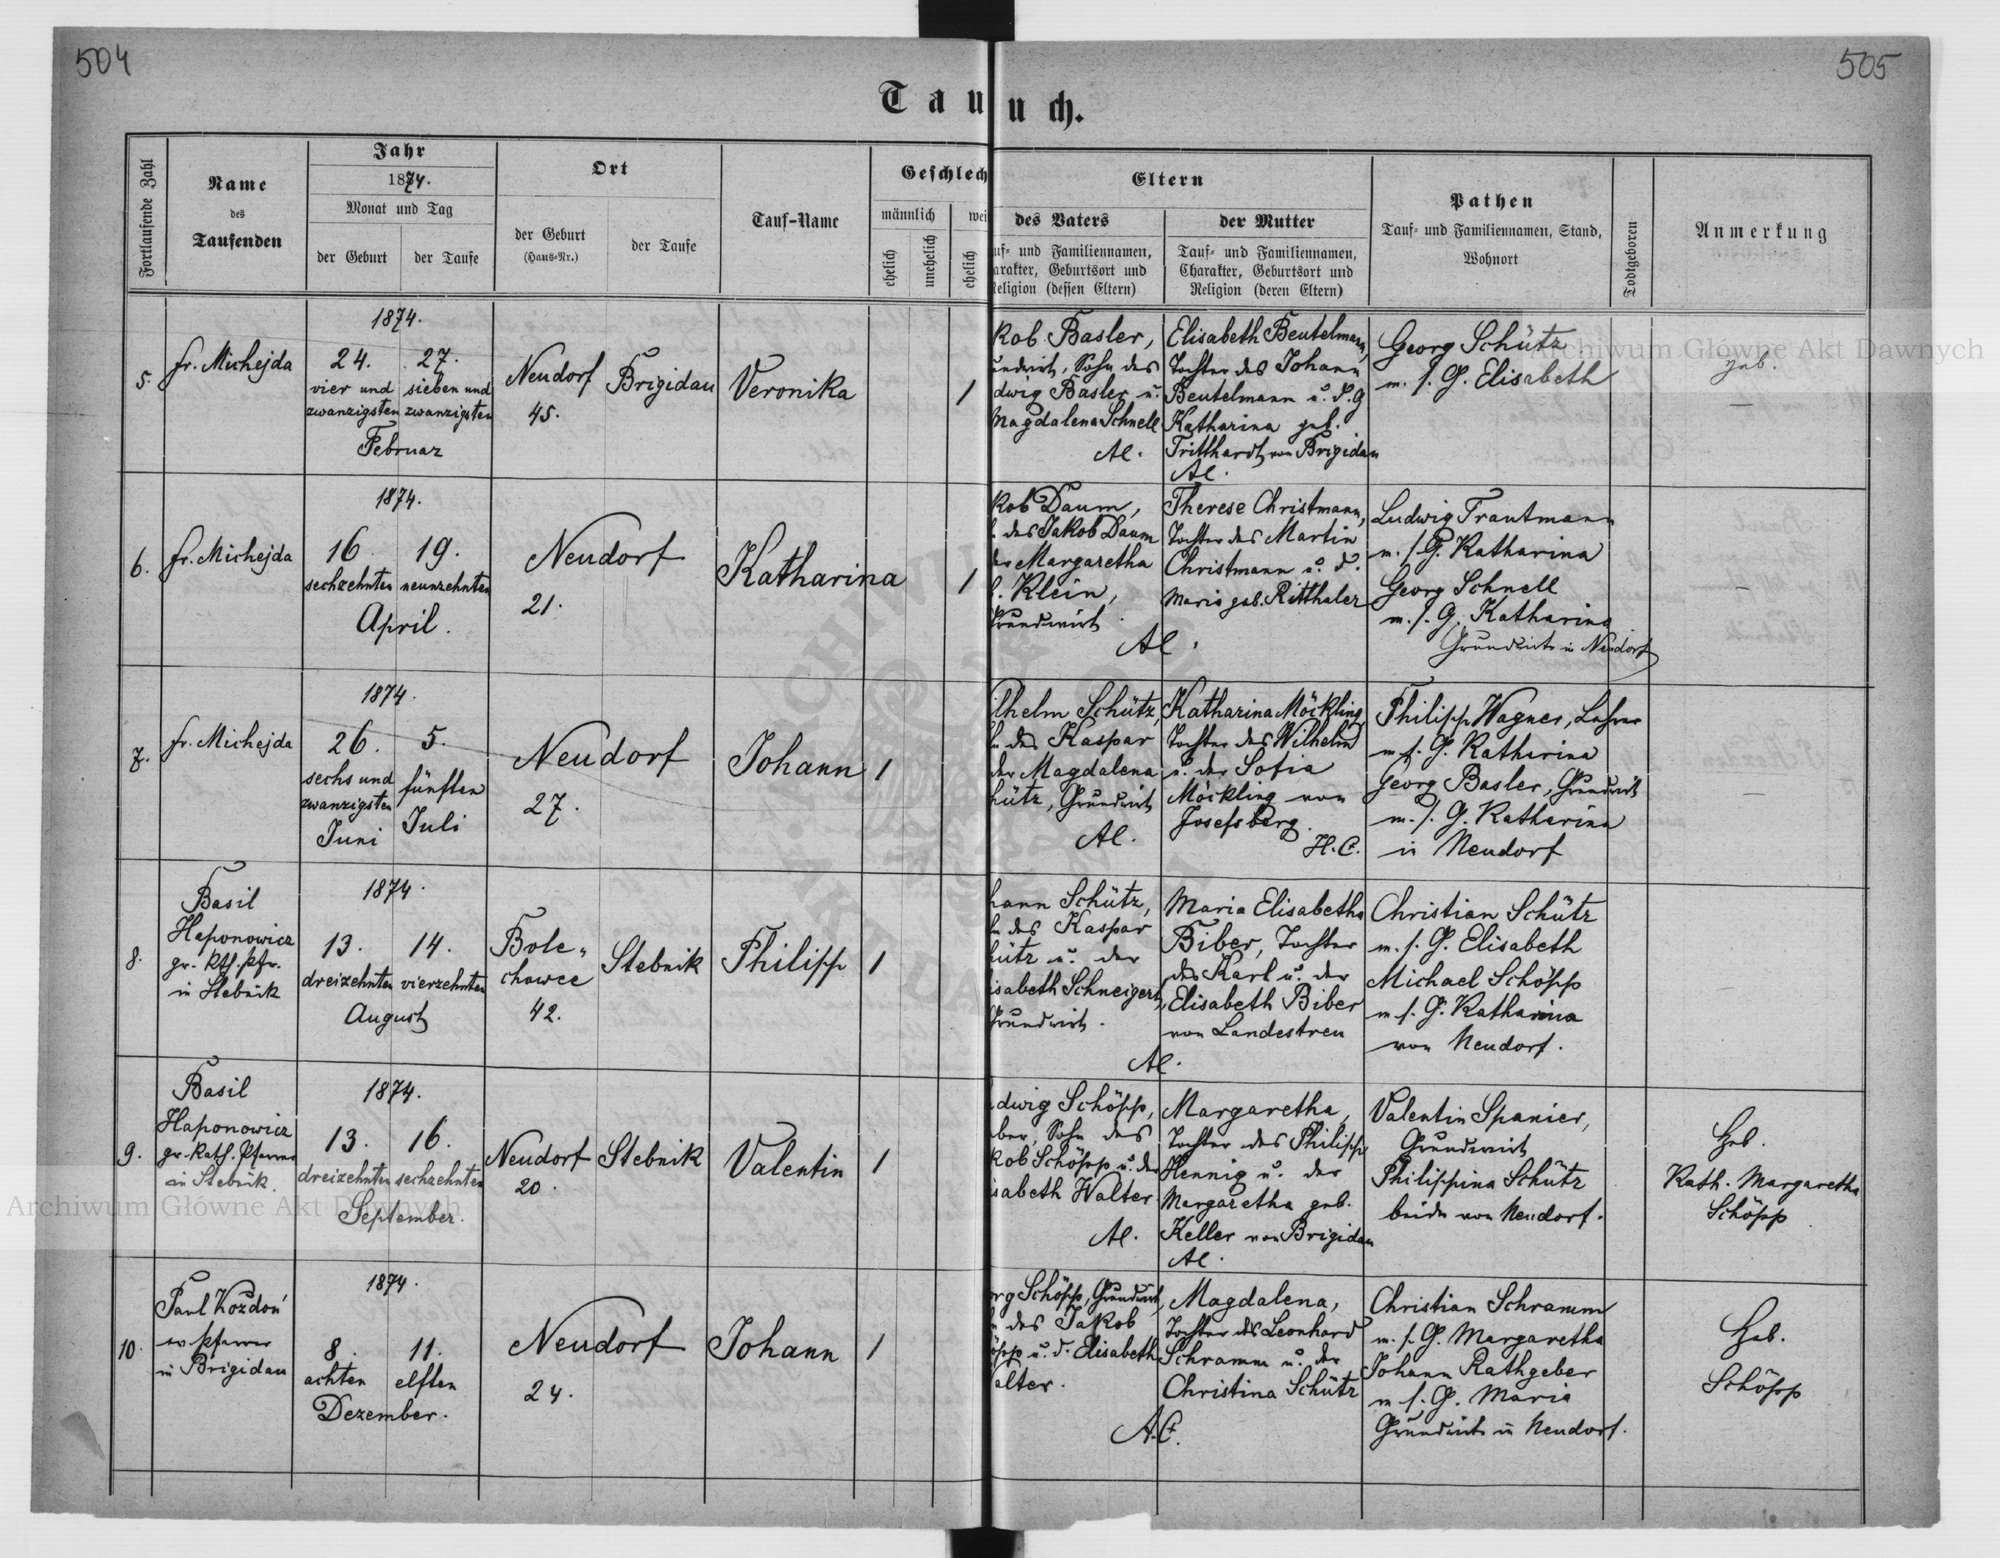 504
505
Tau
uch.
Fortlaufende Zahl
Name
des
Taufenden
Jahr
1874.
Monat und Tag
der Geburt
der Taufe
Ort
der Geburt
(Haus-Nr.)
der Taufe
Tauf-Name
Geschlech
männlich
wei
ehelich
unehelich
ehelich
Eltern
des Vaters
uf- und Familiennamen,
arakter, Geburtsort und
Religion (dessen Eltern)
der Mutter
Tauf- und Familiennamen,
Charakter, Geburtsort und
Religion (deren Eltern)
Pathen
Tauf- und Familiennamen, Stand,
Wohnort
Todtgeboren
Anmerkung
5.
fr. Michejda
1874.
24. 27.
vier und sieben und
zwanzigsten zwanzigsten
Februar
Neudorf
45.
Brigidau
Veronika
1
kob Basler,
undwirt, Sohn des
dwig Basler u.
Magdalena Schnell
AC.
Elisabeth Beutelmann,
Tochter des Johann
Beutelmann u. d. G
Katharina geb.
Tritthardt von Brigidau
AC.
Georg Schütz
m. s. G. Elisabeth
geb.
—
6.
fr. Michejda
1874.
16. 19.
sechzehnten neunzehnten
April.
Neudorf
21.
Katharina
1
kob Daum,
des Jakob Daum
Margaretha
Klein,
Grundwirt
AC.
Therese Christmann,
Tochter des Martin
Christmann u. d.
Maria geb. Ritthaler
Ludwig Trautmann
m. s. G. Katharina
Georg Schnell
m. s. G. Katharina
Grundwirte in Neudorf
—
7.
fr. Michejda
1874.
26. 5.
sechs und fünften
zwanzigsten
Juni Juli
Neudorf
27.
Johann
1
ilhelm Schütz,
des Kaspar
der Magdalena
hütz, Grundwirt
AC.
Katharina Möckling,
Tochter des Wilhelm
u. der Sofia
Möckling von
Josefsberg.
H.C.
Philipp Wagner, Lehrer
m. s. G. Katharina
Georg Basler, Grundwirt
m. s. G. Katharina
in Neudorf
—
8.
Basil
Haponowicz
gr. kth. Pfr.
in Stebnik
1874.
13. 14.
dreizehnten vierzehnten
August
Bole-
chowce
42.
Stebnik
Philipp
1
hann Schütz,
des Kaspar
hütz u. der
isabeth Schneigert,
Grundwirt.
AC.
Maria Elisabetha
Biber, Tochter
des Karl u. der
Elisabeth Biber
von Landestreu
Christian Schütz
m. s. G. Elisabeth
Michael Schöpp
m. s. G. Katharina
von Neudorf.
—
9.
Basil
Haponowicz
gr. Kath. Pfarrer
in Stebnik.
1874.
13. 16.
dreizehnten sechzehnten
September.
Neudorf
20.
Stebnik
Valentin
1
dwig Schöpp,
ber, Sohn des
kob Schöpp u. der
isabeth Walter
AC.
Margaretha,
Tochter des Philipp
Hennig u. der
Margaretha geb.
Keller von Brigidau
AC.
Valentin Spanier,
Grundwirt
Philippina Schütz
beide von Neudorf.
Heb.
Kath. Margaretha
Schöpp
10.
Paul Kozdoń
ev Pfarrer
in Brigidau
1874.
8. 11.
achten elften
Dezember.
Neudorf
24.
Johann
1
org Schöpp, Grundwirt,
des Jakob
öpp u. d. Elisabeth
alter.
A.C.
Magdalena,
Tochter des Leonhard
Schramm u. der
Christina Schütz
Christian Schramm
m. s. G. Margaretha
Johann Rathgeber
m. s. G. Maria
Grundwirte in Neudorf.
Heb.
Schöpp
Archiwum Główne Akt Dawnych
Archiwum Główne Akt Dawnych